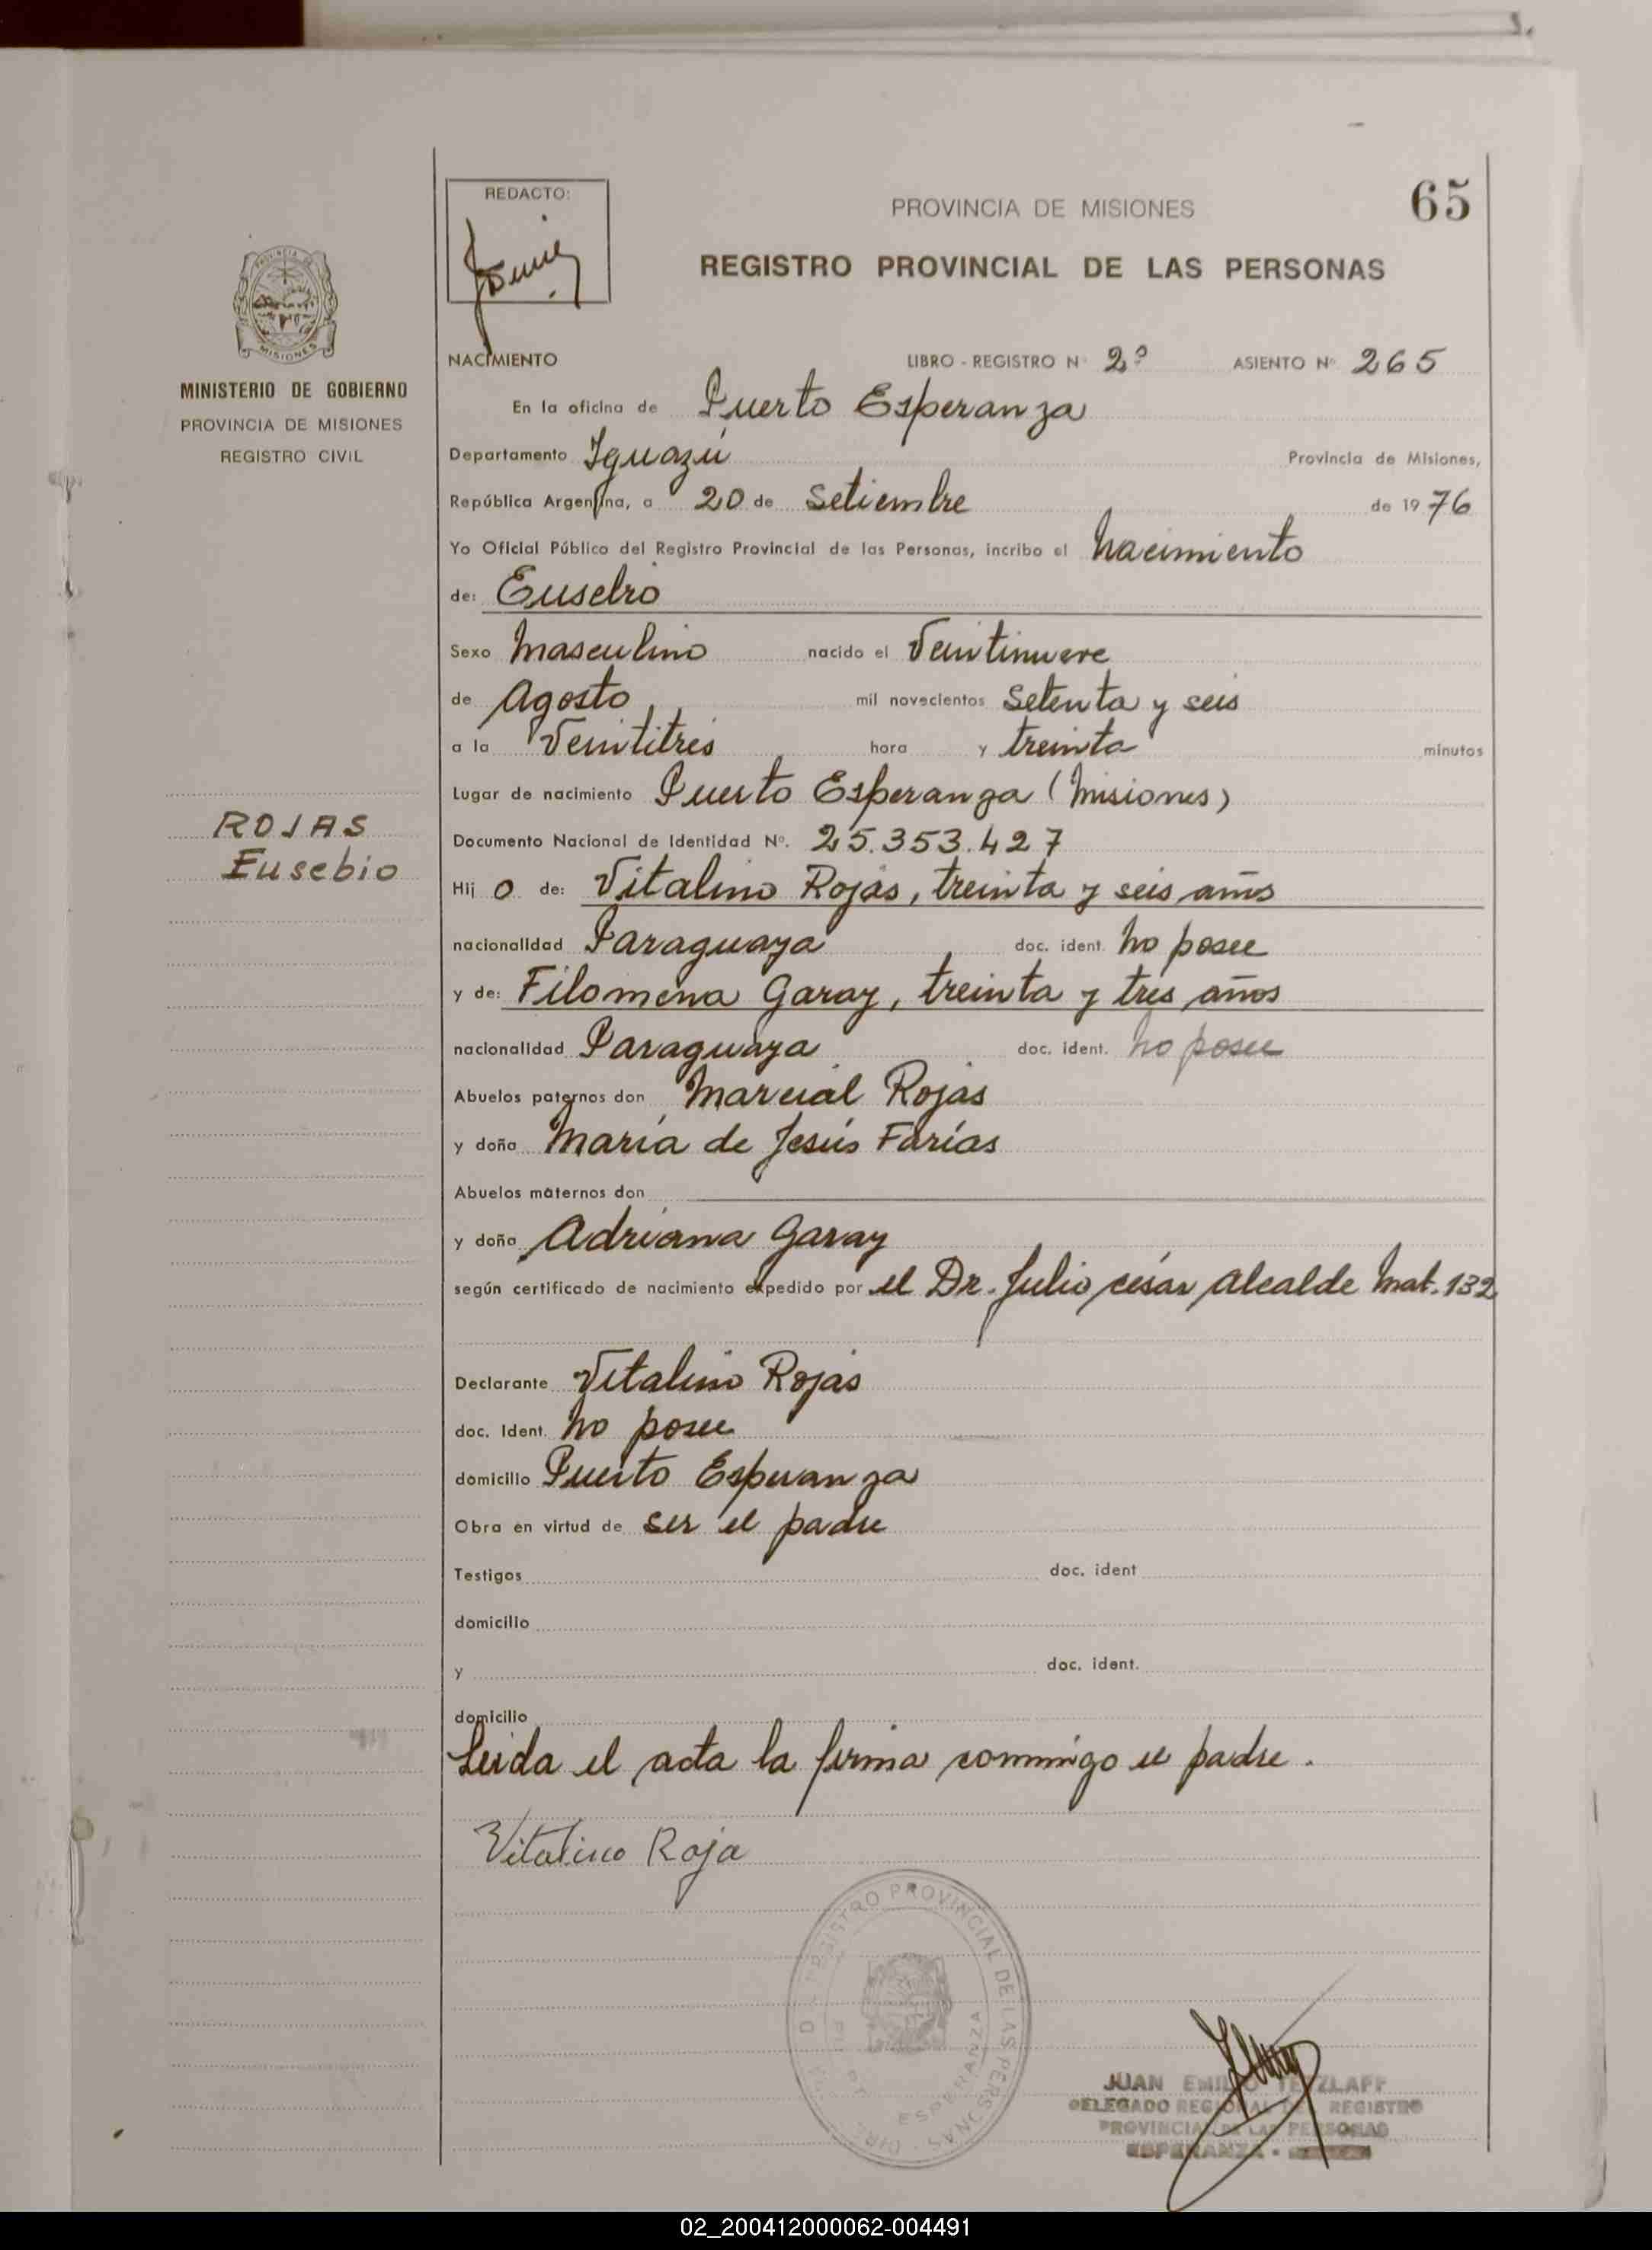 REDACTO:
PROVINCIA DE MISIONES
65
REGISTRO PROVINCIAL DE LAS PERSONAS
PROVINCIA DE
MISIONES
MINISTERIO DE GOBIERNO
PROVINCIA DE MISIONES
REGISTRO CIVIL
ROJAS
Eusebio
NACIMIENTO LIBRO - REGISTRO N° 2° ASIENTO N° 265
En la oficina de Puerto Esperanza
Departamento Iguazú Provincia de Misiones,
República Argentina, a 20 de Setiembre de 1976
Yo Oficial Público del Registro Provincial de las Personas, incribo el Nacimiento
de: Eusebio
Sexo Masculino nacido el Veintinueve
de Agosto mil novecientos Setenta y seis
a la Veintitrés hora y treinta minutos
Lugar de nacimiento Puerto Esperanza (Misiones)
Documento Nacional de Identidad N°. 25.353.427
Hij o de: Vitalino Rojas, treinta y seis años
nacionalidad Paraguaya doc. ident. No posee
y de: Filomena Garay, treinta y tres años
nacionalidad Paraguaya doc. ident. No posee
Abuelos paternos don Marcial Rojas
y doña María de Jesús Farías
Abuelos maternos don
y doña Adriana Garay
según certificado de nacimiento expedido por el Dr. Julio césar Alcalde Mat. 132
Declarante Vitalino Rojas
doc. Ident. No posee
domicilio Puerto Esperanza
Obra en virtud de ser el padre
Testigos doc. ident
domicilio
y doc. ident.
domicilio
Leida el acta la firma conmigo el padre.
Vitalino Roja
REGISTRO PROVINCIAL DE LAS PERSONAS
ESPERANZA
JUAN EMILIO TETZLAFF
DELEGADO REGIONAL DEL REGISTRO
PROVINCIAL DE LAS PERSONAS
ESPERANZA -
02_200412000062-004491